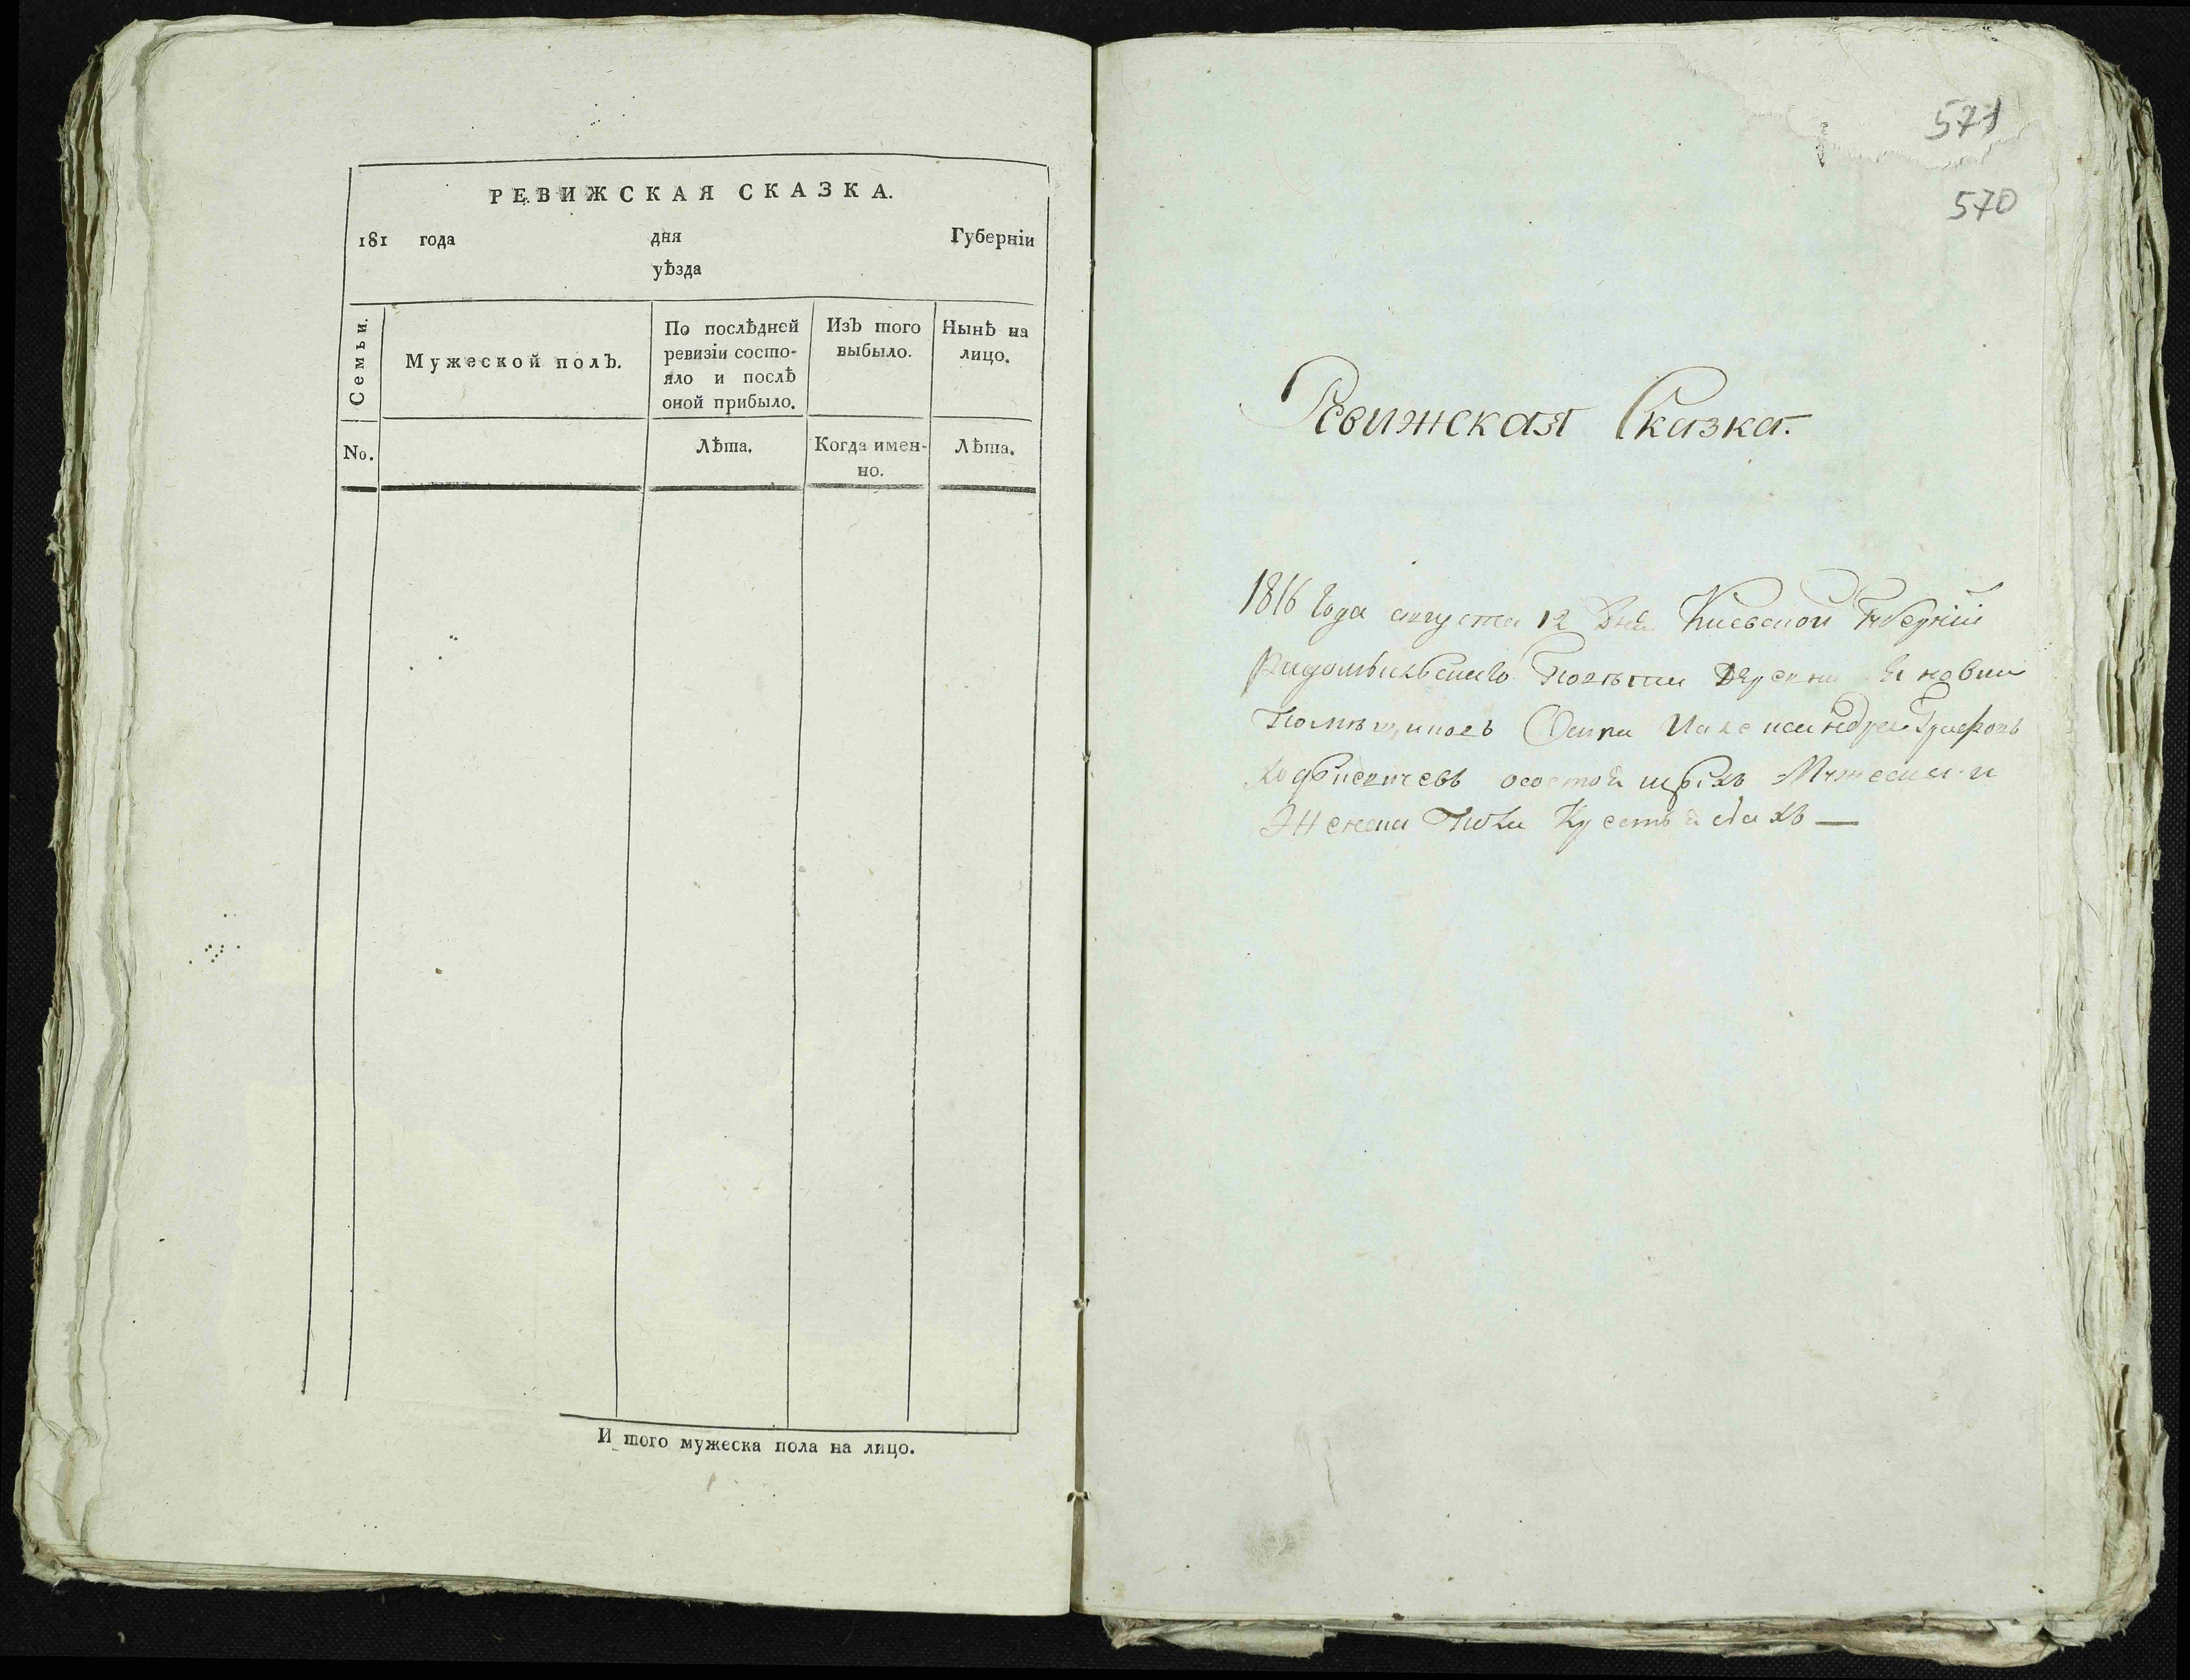 РЕВИЖСКАЯ СКАЗКА.
181 года дня Губерніи
уѣзда
Семьи.
Мужеской полъ.
По послѣдней
ревизіи состо-
яло и послѣ
оной прибыло.
Изъ того
выбыло.
Нынѣ на
лицо.
No.
Лѣта.
Когда имен-
но.
Лѣта.
И того мужеска пола на лицо.
571
570
Ревижская Сказка.
1816 Года августа 12 Дня Киевской Губерніи
Радомысльскаго Повѣта Деревни
Помѣщиковъ Иалександра Графовъ
Ходкѣвичевъ осостоящыхъ Мужеска и
Женска Пола Крестьянахъ —